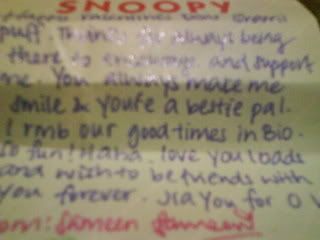 SNOOPY
Happy Valentines Day Cream
puff. Thanks for always being
there to encourage and support
me. You always make me
smile & you're a bestie pal.
I rmb our good times in Bio.
So fun! Haha. love you loads
and wish to be friends with
you forever. Jia You for O